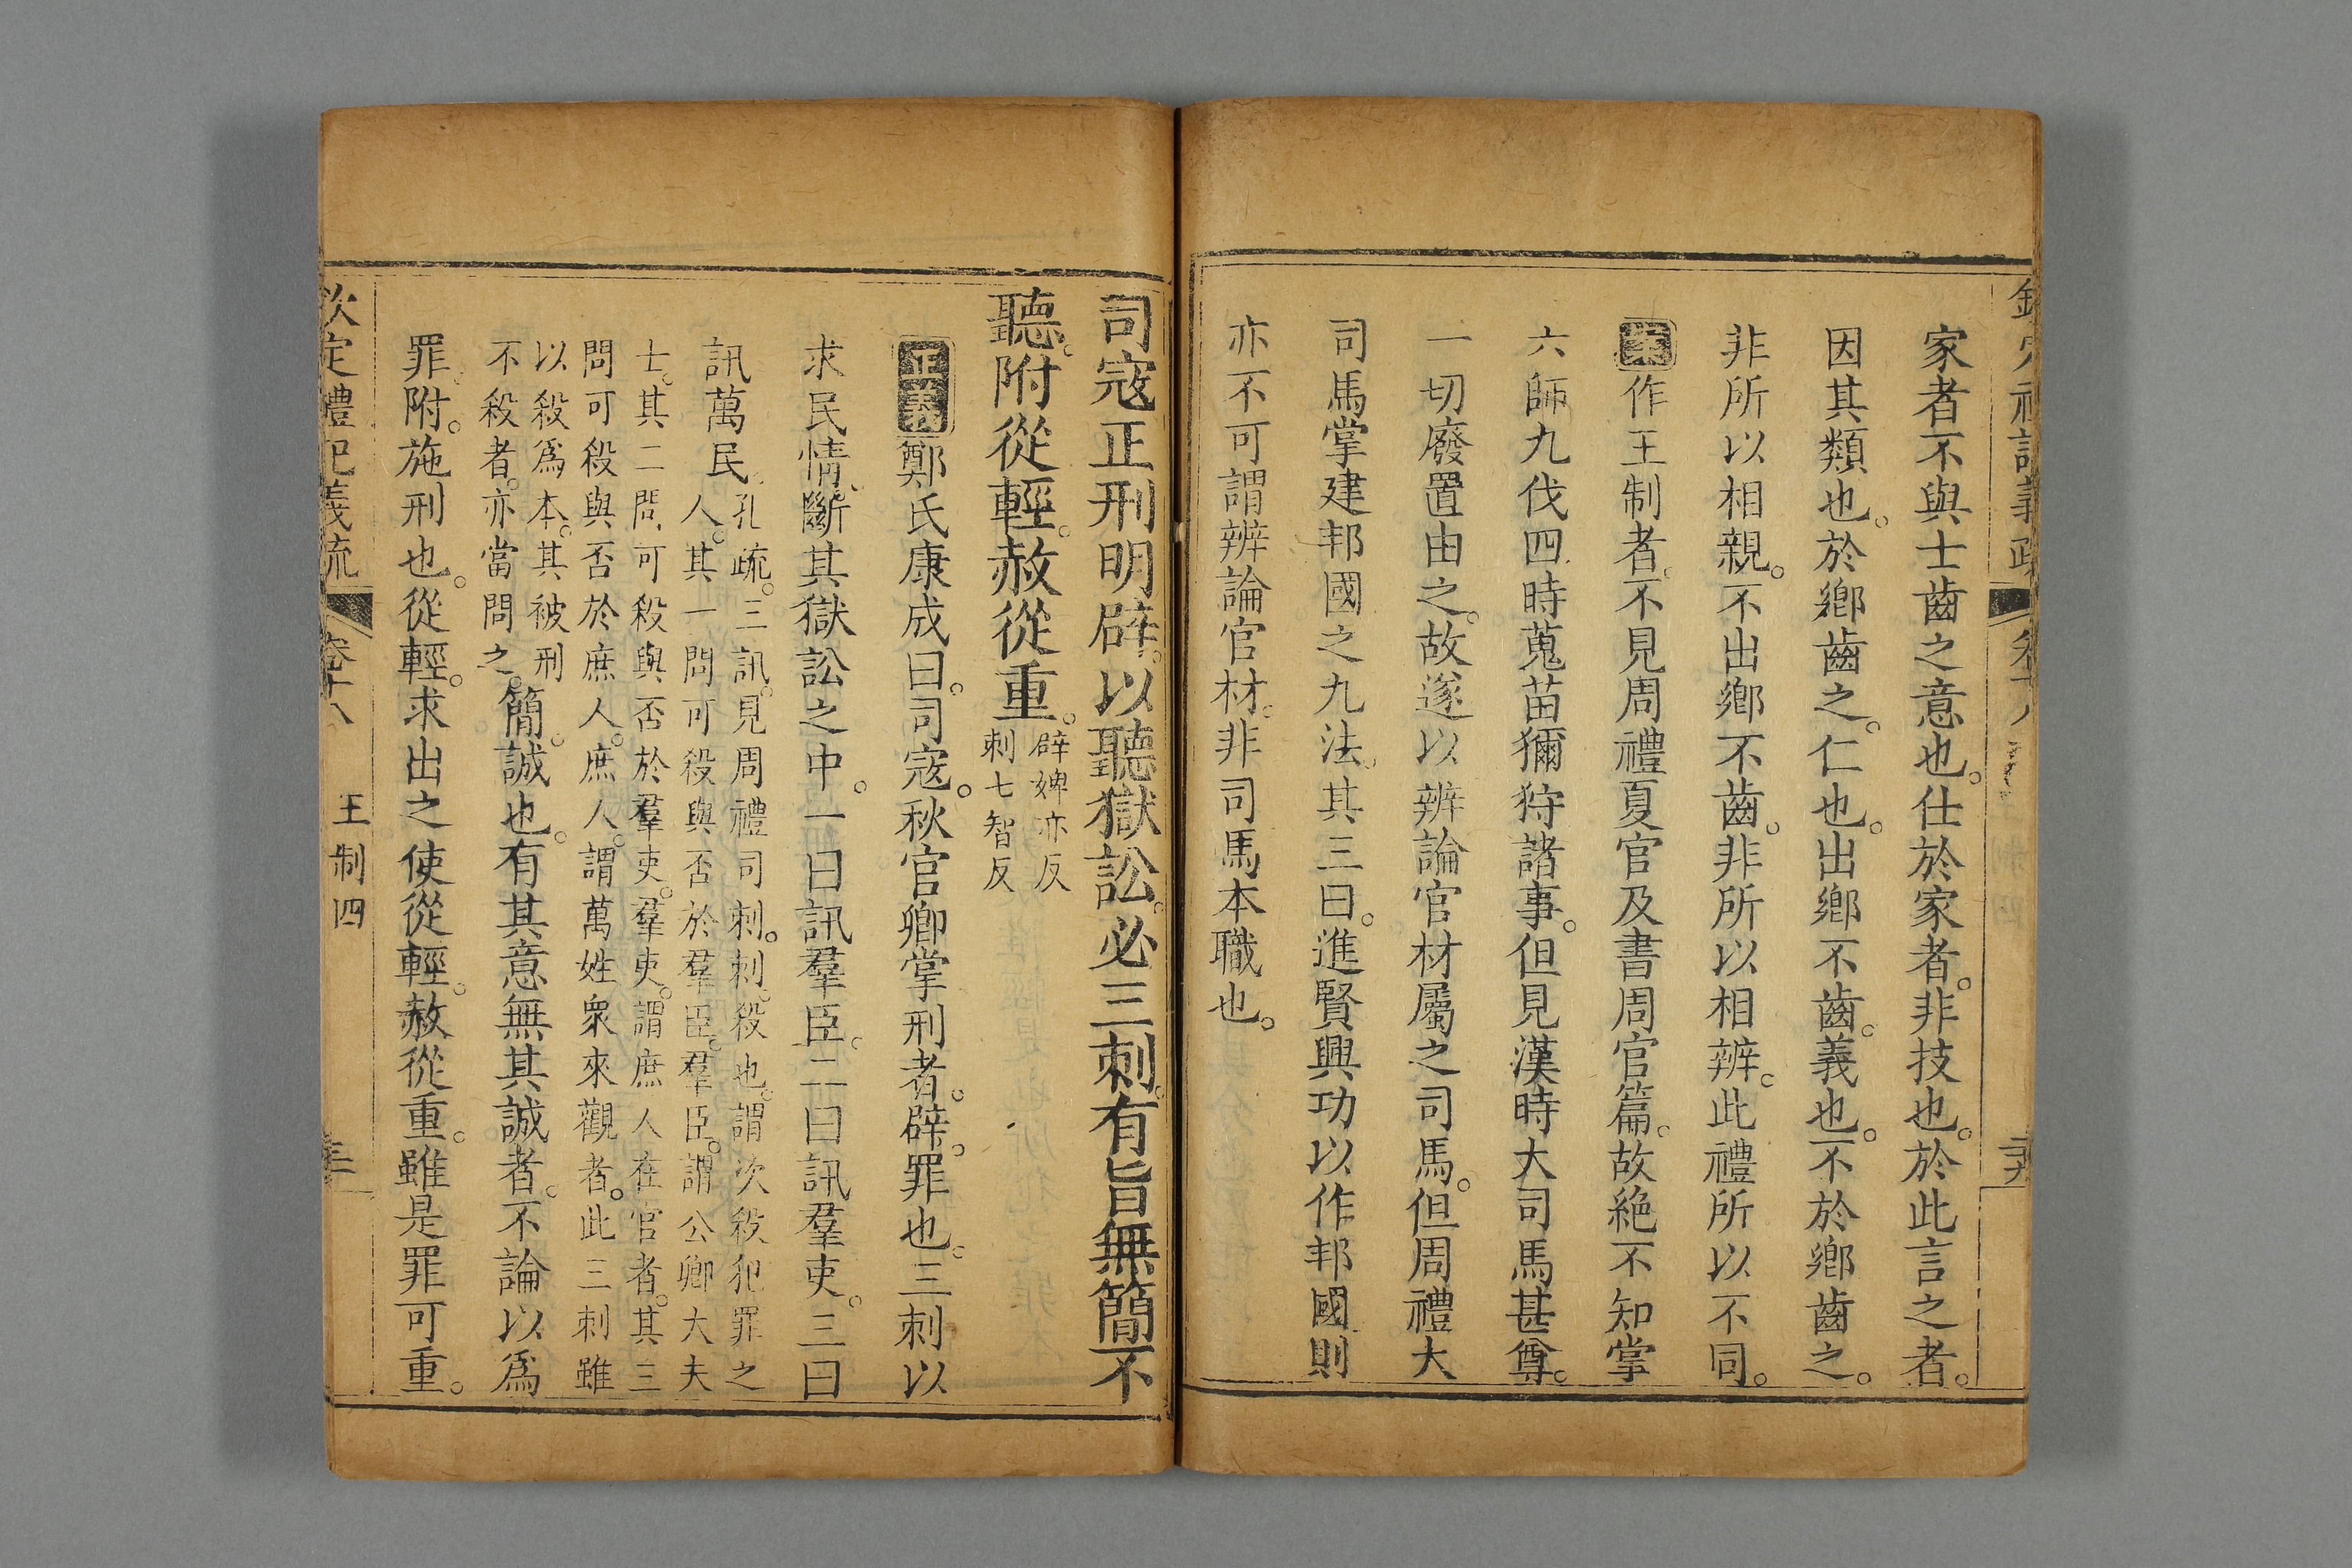 家者不與士齒之意也。仕於家者。非技也。於此言之者。
因其類也。於鄉齒之。仁也。出鄉不齒。義也。不於鄉齒之。
非所以相親。不出鄉不齒。非所以相辨。此禮所以不同。
案作王制者。不見周禮夏官及書周官篇。故絶不知掌
六師九伐四時蒐苗獮狩諸事。但見漢時大司馬甚尊。
一切廢置由之。故遂以辨論官材屬之司馬。但周禮大
司馬掌建邦國之九法。其三曰。進賢興功以作邦國。則
亦不可謂辨論官材。非司馬本職也。
司寇正刑明辟。以聽獄訟。必三刺。有旨無簡不
聽。附從輕。赦從重。
辟婢亦反
刺七智反
正義鄭氏康成曰。司寇。秋官卿掌刑者。辟。罪也。三刺以
求民情。斷其獄訟之中。一曰訊羣臣。二曰訊羣吏。三曰
訊萬民。
孔疏。三訊。見周禮司刺。刺。殺也。謂次殺犯罪之
人。其一問可殺與否於羣臣。羣臣。謂公卿大夫
士。其二問可殺與否於羣吏。羣吏。謂庶人在官者。其三
問可殺與否於庶人。庶人。謂萬姓衆來觀者。此三刺雖
以殺爲本。其被刑
不殺者。亦當問之。
簡。誠也。有其意無其誠者。不論以爲
罪。附。施刑也。從輕。求出之使從輕。赦從重。雖是罪可重。
欽定禮記義疏
卷十八
王制四